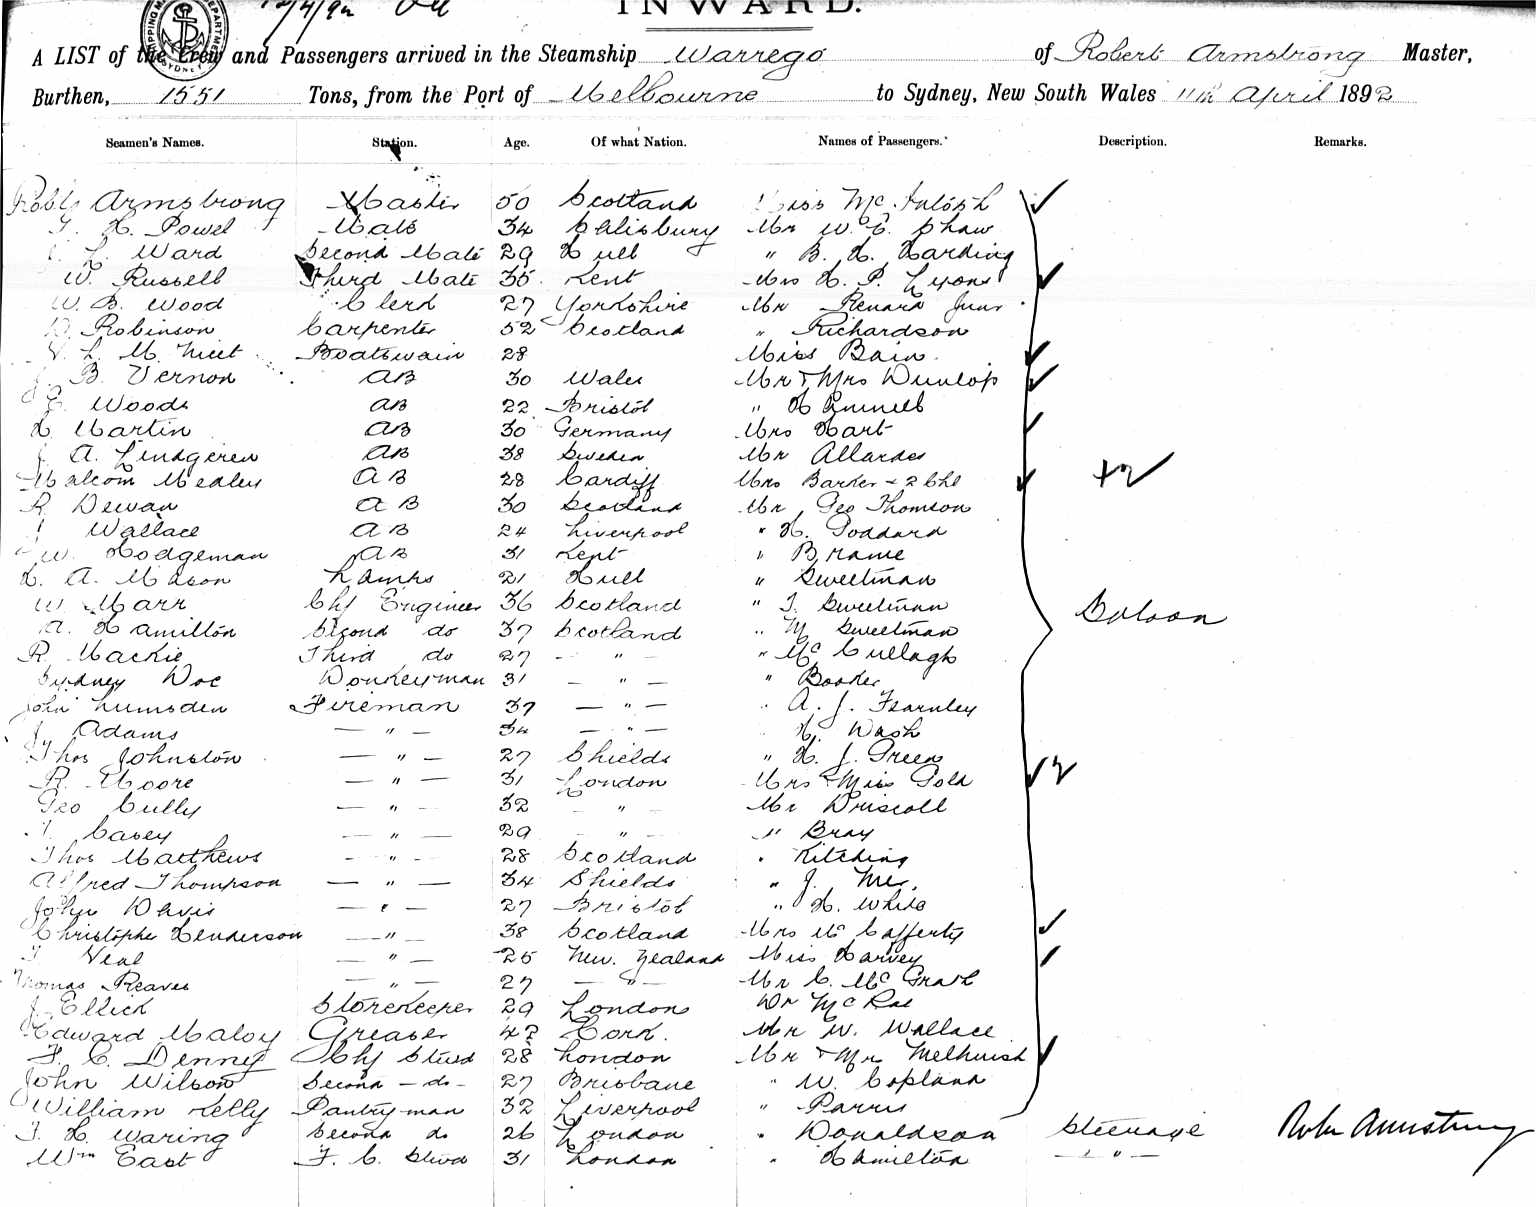 12/4/92
INWARD.
SHIPPING MASTER'S DEPARTMENT SYDNEY
A LIST of the Crew and Passengers arrived in the Steamship Warrego of Robert Armstrong Master,
Burthen, 1551 Tons, from the Port of Melbourne to Sydney, New South Wales 11th April 1892
Seamen's Names. Station. Age. Of what Nation. Names of Passengers. Description. Remarks.
Robt Armstrong Master 50 Scotland Miss McIntosh
H. Powel Mate 34 Salisbury Mr W. E. Shaw
L. Ward Second Mate 29 Hull " B. H. Harding
W. Russell Third Mate 35 Kent Mrs H. P. Lyons
W. B. Wood Clerk 27 Yorkshire Mr Renard Junr
D. Robinson Carpenter 52 Scotland " Richardson
Boatswain 28 Miss Bain
B. Vernon AB 30 Wales Mr & Mrs Dunlop
E. Woods AB 22 Bristol "
H. Martin AB 30 Germany Mrs Hart
J. A. Lindgren AB 38 Sweden Mr Allardes
Malcom Medley AB 28 Cardiff Mrs Barker + 2 Chl +2
R. Dewan AB 30 Scotland Mr Geo Thomson
J Wallace AB 24 Liverpool " H. Goddard
W. Hodgeman AB 31 Kent " Brame
H. A. Mason Lamps 21 Hull " Sweetman
W. Marr Chf Engineer 36 Scotland " T. Sweetman Saloon
A. Hamilton Second do 37 Scotland " M Sweetman
R. Mackie Third do 27 — " — " McCullagh
Sydney Doe Donkeyman 31 — " — " Booker
John Lumsden Fireman 37 — " — " A. J. Fearnley
J. Adams — " — 34 — " — H. Wash
Thos Johnston — " — 27 Shields " H. J. Green
R. Moore — " — 31 London Mrs & Miss Gold 2
Geo Cully — " — 32 — " — Mr Driscoll
T. Casey — " — 29 — " — " Bray
Thos Matthews — " — 28 Scotland " Kitching
Alfred Thompson — " — 34 Shields " J.
John Davis — " — 27 Bristol " H. White
Christophe Henderson — " — 38 Scotland Mrs McCafferty
T. Neal — " — 25 New Zealand Miss Harvey
Thomas Reaves — " — 27 — " — Mr C. McGrath
J. Ellick Storekeeper 29 London Dr McRae
Edward Maloy Greaser 42 Cork. Mr W. Wallace
F. C. Denny Chf Stewd 28 London Mr & Mrs Melhuish
John Wilson Second — do — 27 Brisbane " W. Copland
William Kelly Pantryman 32 Liverpool " Parris
T. H. Waring Second do 26 London " Donaldson Steerage Robt Armstrong
Wm East F. C. Stewd 31 London " Hamilton — " —